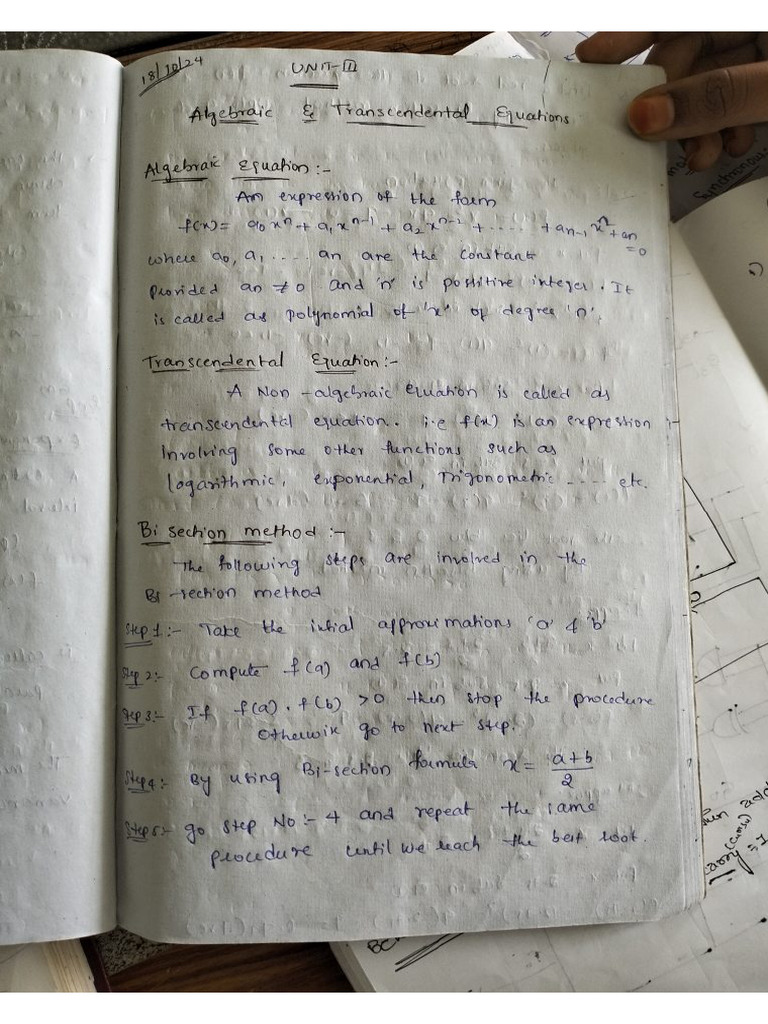 18/10/24
UNIT-II
Algebraic & Transcendental Equations
Algebraic Equation:-
An expression of the form
f(x)= a0 xⁿ + a1 xⁿ⁻¹ + a2 xⁿ⁻² + ..... + an-1 x + an =0
where a0, a1 .... an are the constant
provided an ≠ 0 and 'n' is postitive integer. It
is called as polynomial of 'x' of degree 'n'.
Transcendental Equation:-
A Non-algebraic equation is called as
transcendental equation. i.e f(x) is an expression :-
Involving some other functions such as
logarithmic, exponential, Trigonometric .... etc.
Bi section method :-
The following steps are involved in the
Bi-section method
Step 1:- Take the initial approximations 'a' & 'b'
Step 2:- Compute f(a) and f(b)
Step 3:- If f(a) . f(b) > 0 then stop the procedure
Otherwise go to next step.
Step 4:- By using Bi-section formula x = a+b/2
Step 5:- go step No:- 4 and repeat the same
procedure until we reach the best root.